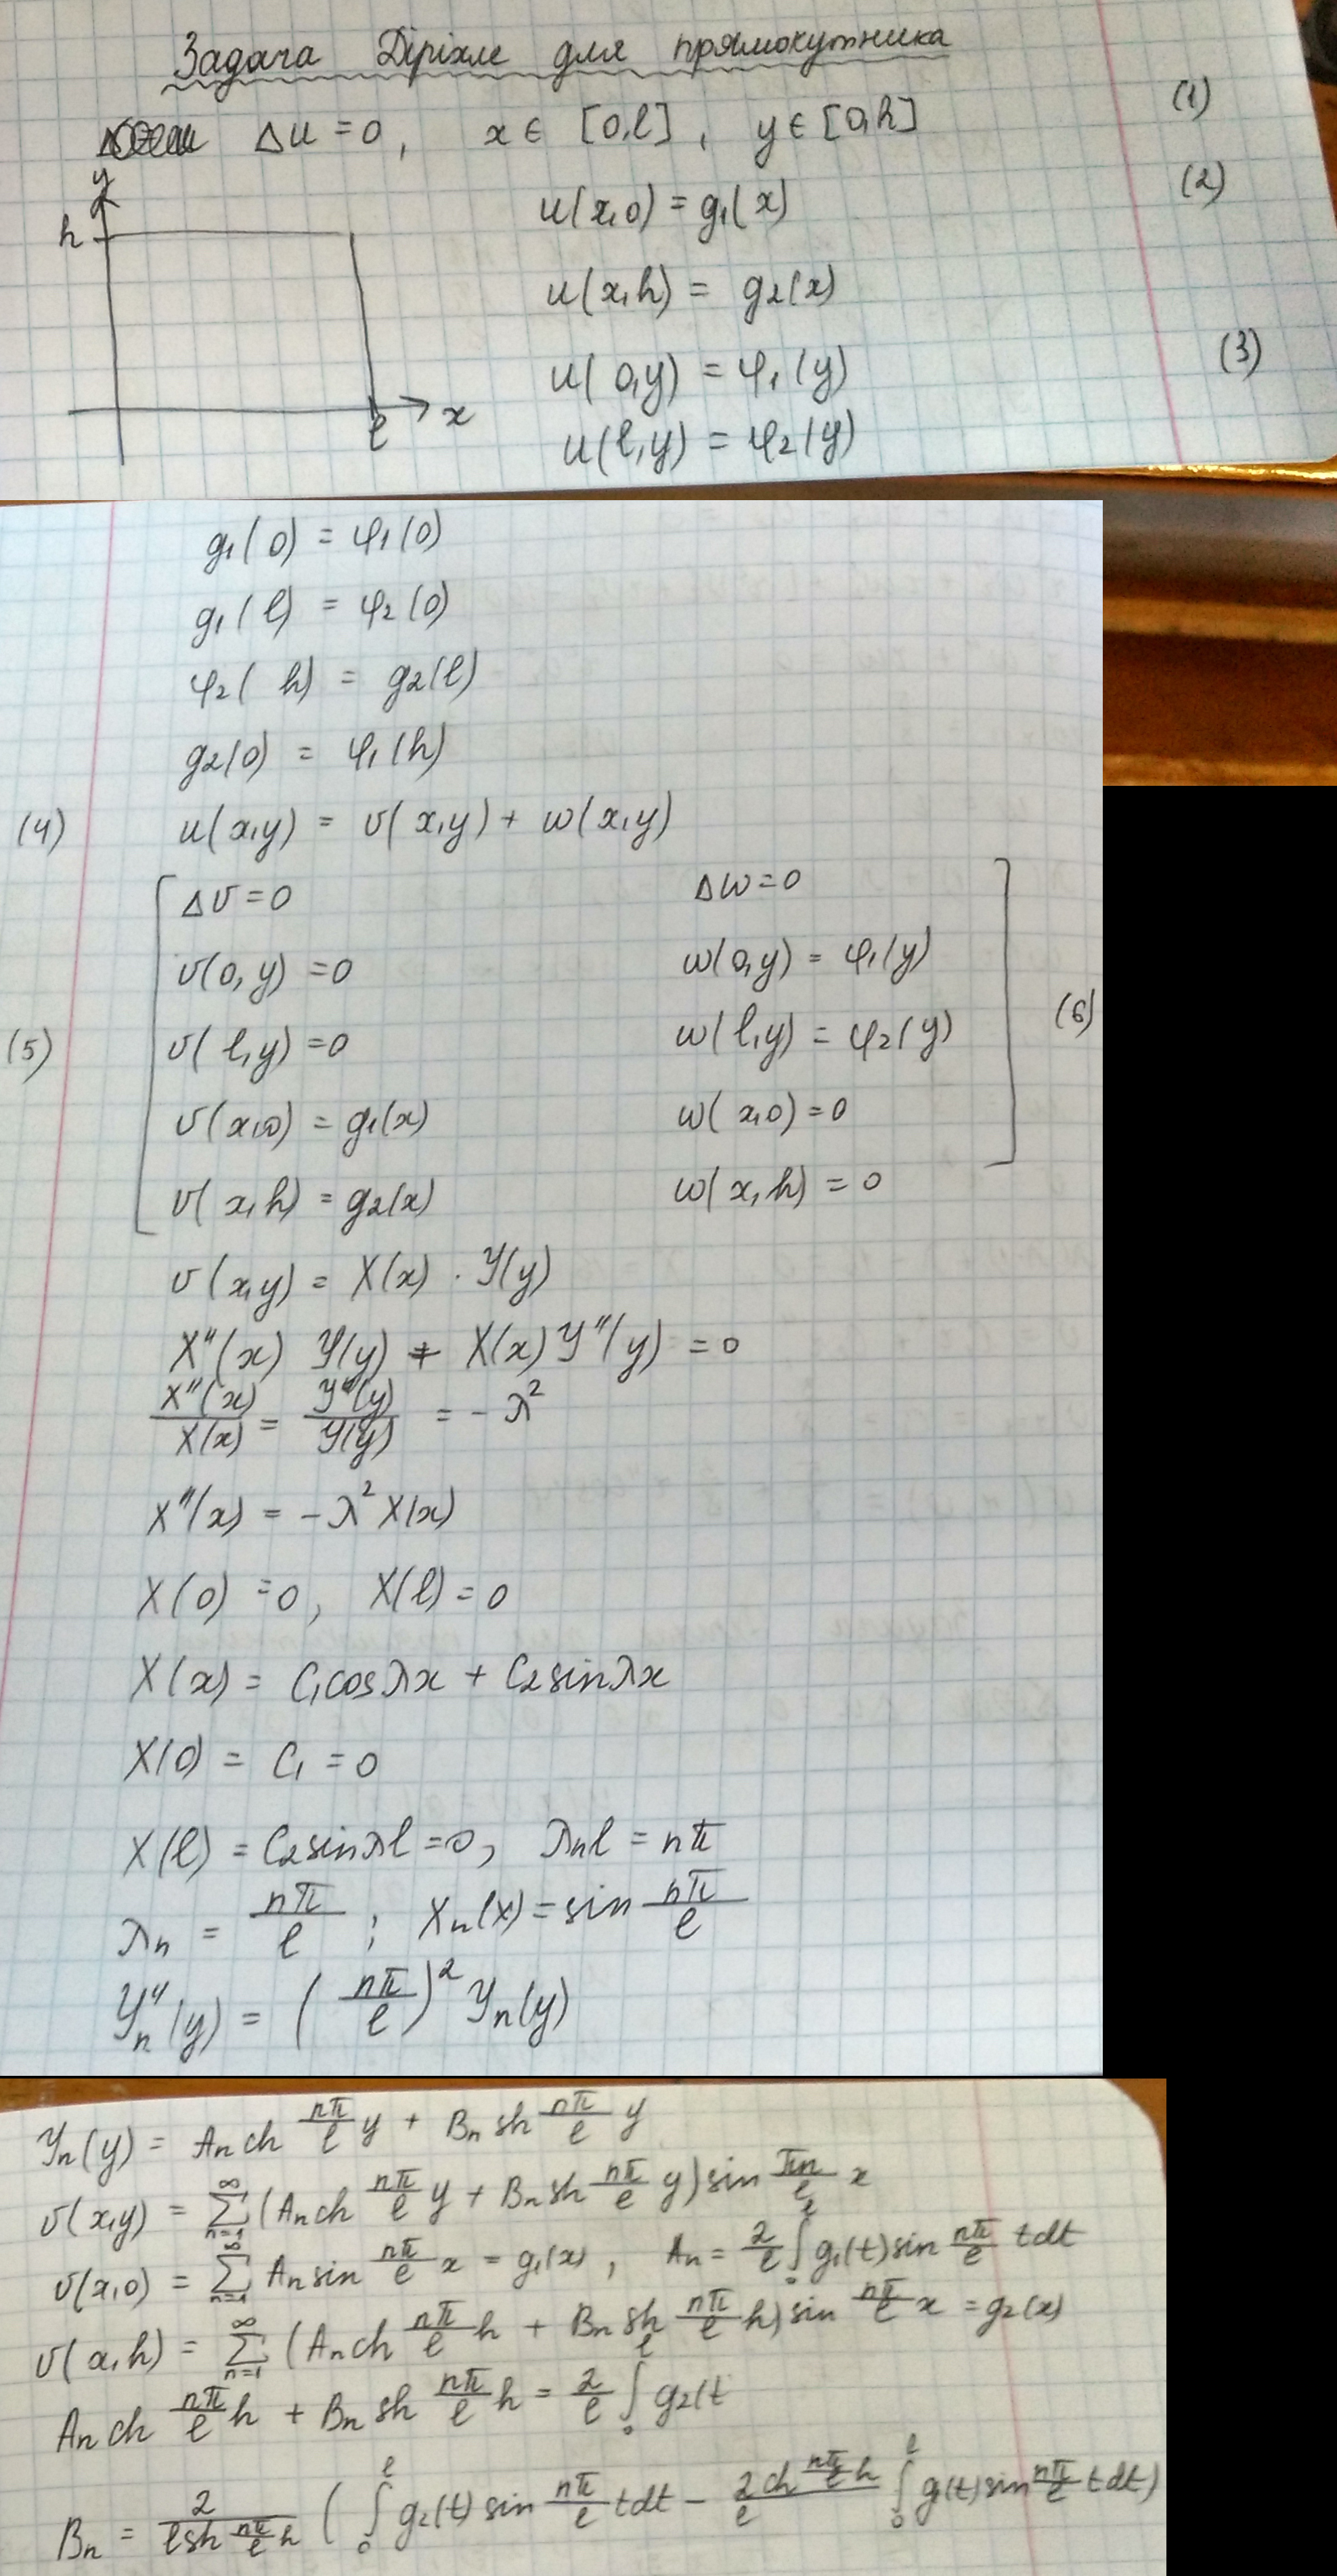 Задача Діріхле для прямокутника
Δu = 0, x ∈ [0, l], y ∈ [0, h] (1)
y
h
l
x
u(x,0) = g₁(x) (2)
u(x,h) = g₂(x)
u(0,y) = φ₁(y) (3)
u(l,y) = φ₂(y)
g₁(0) = φ₁(0)
g₁(l) = φ₂(0)
φ₂(h) = g₂(l)
g₂(0) = φ₁(h)
(4) u(x,y) = v(x,y) + w(x,y)
Δv = 0 Δw = 0
v(0,y) = 0 w(0,y) = φ₁(y)
(5) v(l,y) = 0 w(l,y) = φ₂(y) (6)
v(x,0) = g₁(x) w(x,0) = 0
v(x,h) = g₂(x) w(x,h) = 0
v(x,y) = X(x) · Y(y)
X''(x) Y(y) + X(x) Y''(y) = 0
X''(x)/X(x) = Y''(y)/Y(y) = -λ²
X''(x) = -λ² X(x)
X(0) = 0, X(l) = 0
X(x) = C₁cosλx + C₂sinλx
X(0) = C₁ = 0
X(l) = C₂sinλl = 0, λₙl = nπ
λₙ = nπ/l ; Xₙ(x) = sin nπ/l
Yₙ''(y) = (nπ/l)² Yₙ(y)
Yₙ(y) = Aₙ ch nπ/l y + Bₙ sh nπ/l y
v(x,y) = ∑ₙ₌₁^∞ (Aₙ ch nπ/l y + Bₙ sh nπ/l y) sin πn/l x
v(x,0) = ∑ₙ₌₁^∞ Aₙ sin nπ/l x = g₁(x), Aₙ = 2/l ∫₀^l g₁(t) sin nπ/l t dt
v(x,h) = ∑ₙ₌₁^∞ (Aₙ ch nπ/l h + Bₙ sh nπ/l h) sin nπ/l x = g₂(x)
Aₙ ch nπ/l h + Bₙ sh nπ/l h = 2/l ∫₀^l g₂(t
Bₙ = 2/(l sh nπ/l h) ( ∫₀^l g₂(t) sin nπ/l t dt - 2 ch nπ/l h / l ∫₀^l g(t) sin nπ/l t dt)